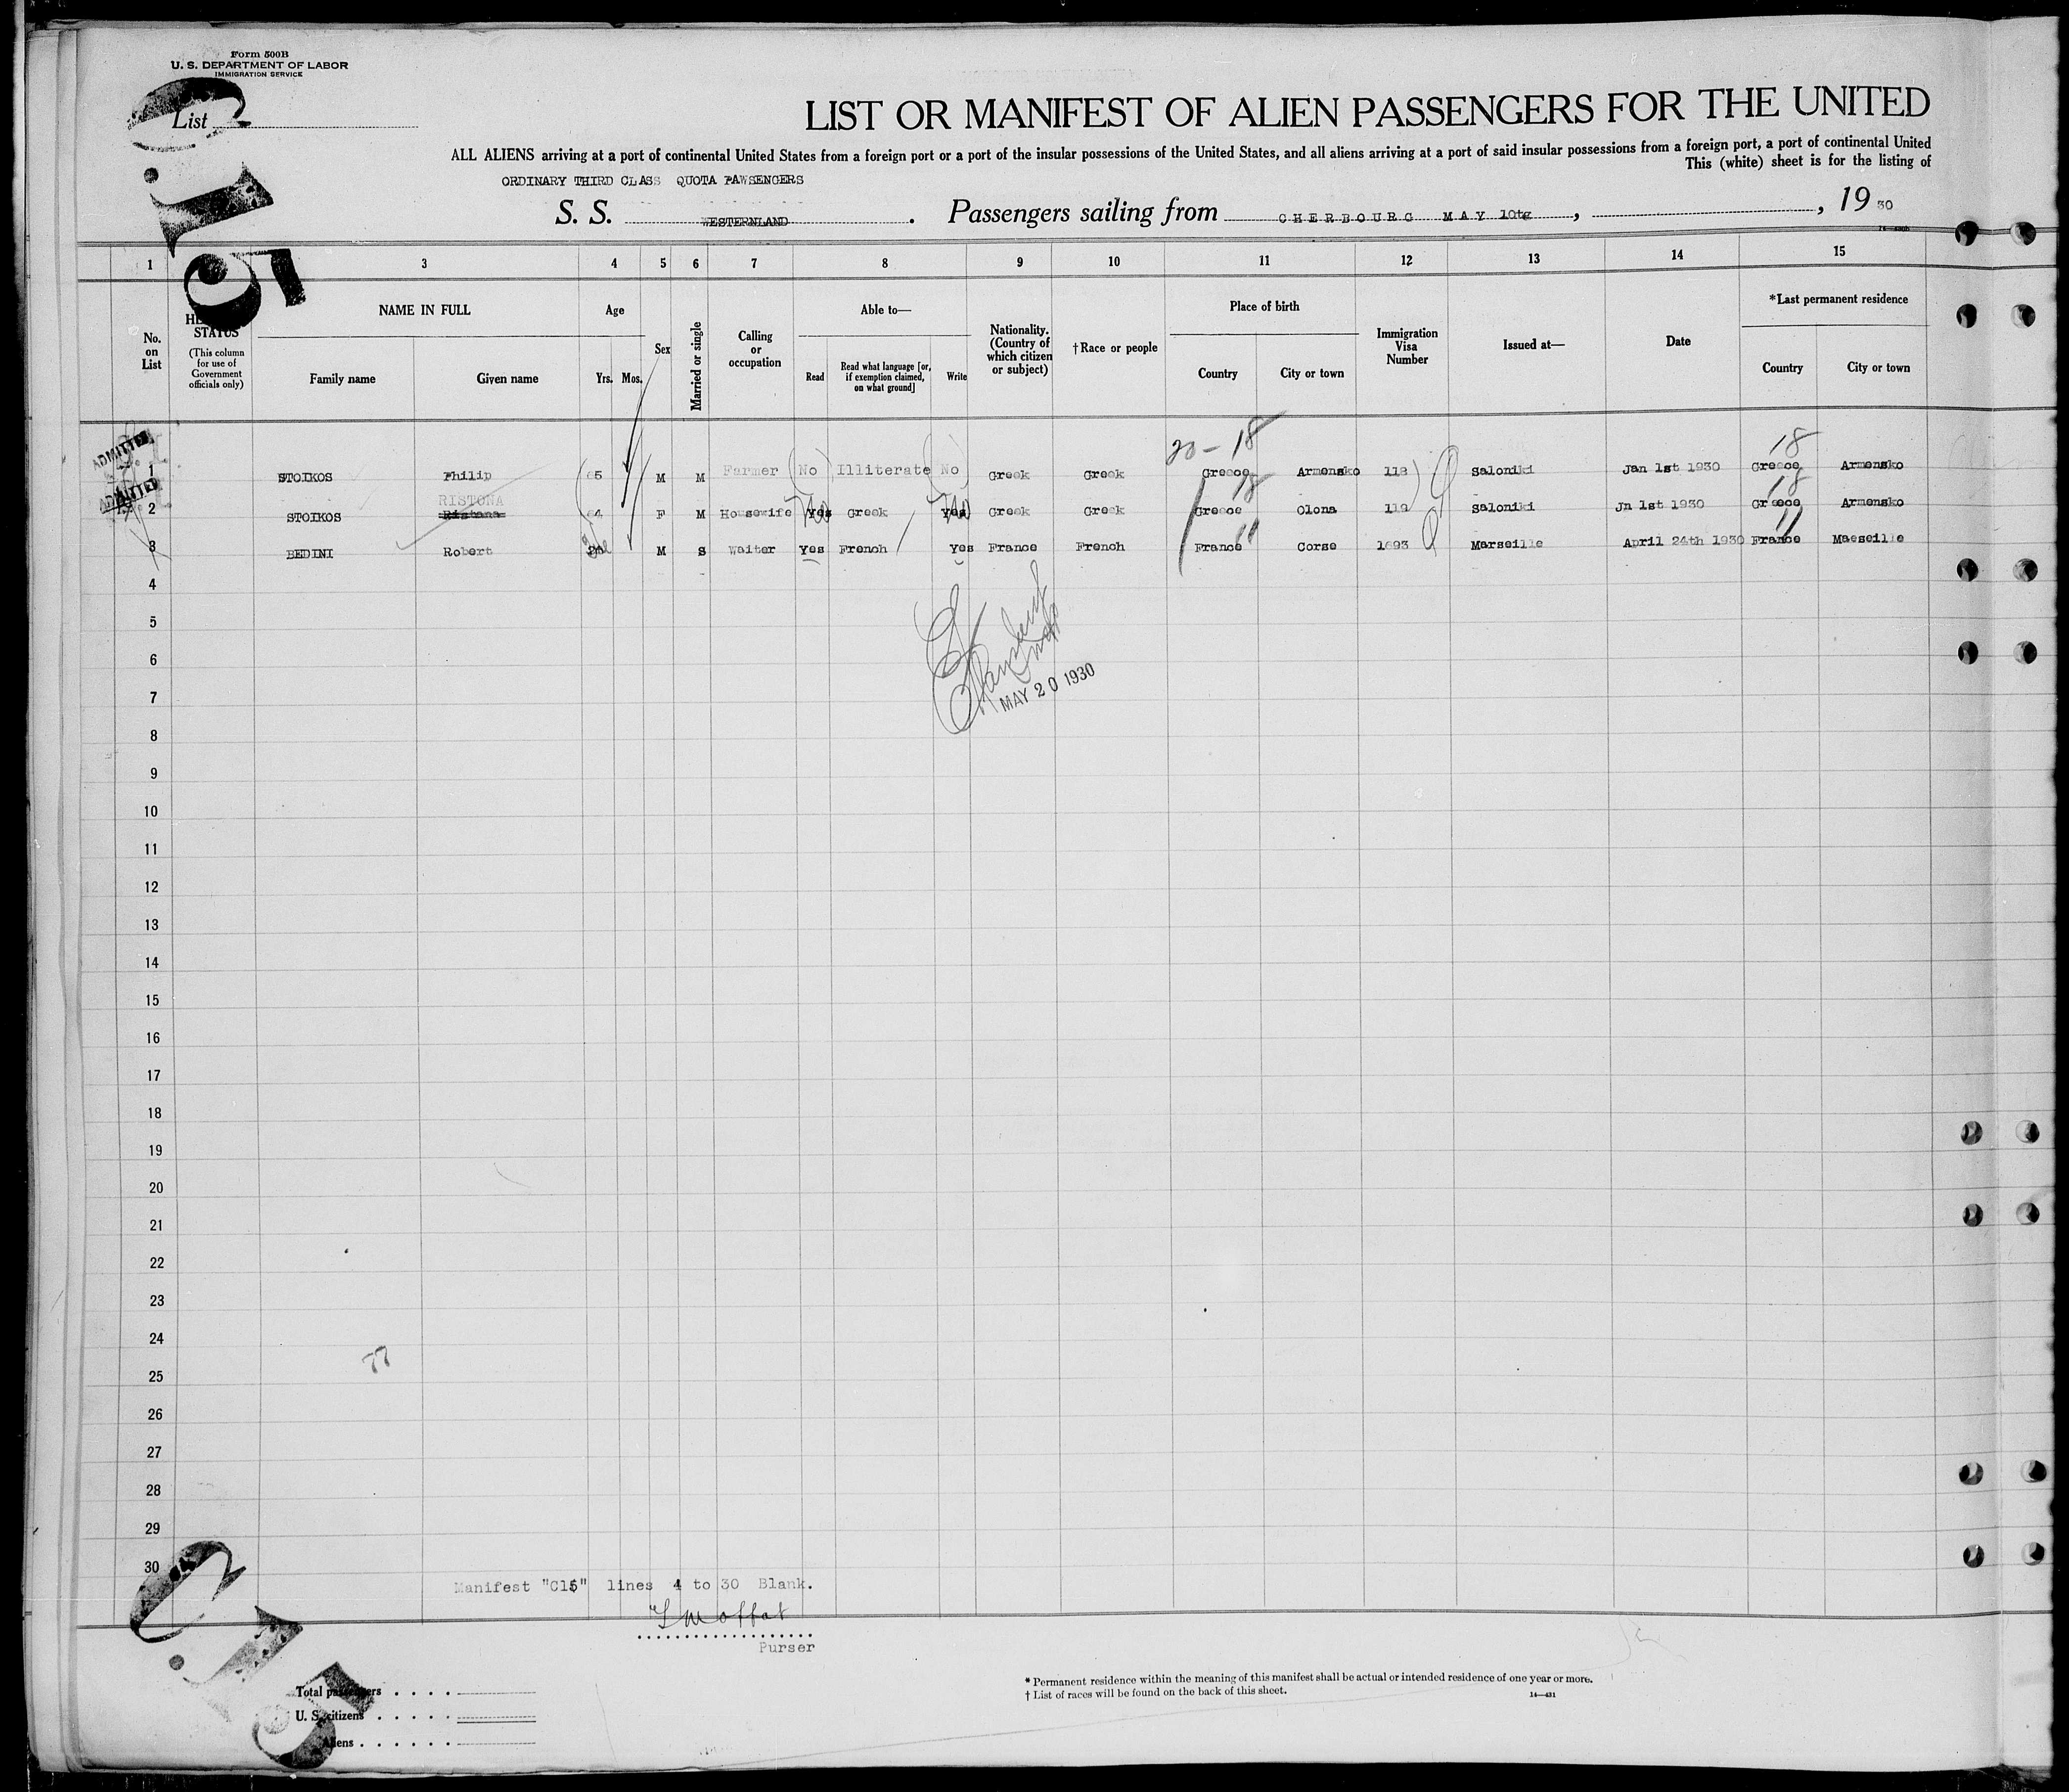 Form 500B
U. S. DEPARTMENT OF LABOR
IMMIGRATION SERVICE
List
LIST OR MANIFEST OF ALIEN PASSENGERS FOR THE UNITED
ALL ALIENS arriving at a port of continental United States from a foreign port or a port of the insular possessions of the United States, and all aliens arriving at a port of said insular possessions from a foreign port, a port of continental United
This (white) sheet is for the listing of
ORDINARY THIRD CLASS QUOTA PAWSENGERS
S. S. WESTERNLAND. Passengers sailing from CHERBOURG MAY 10tg, , 19 30
1 3 4 5 6 7 8 9 10 11 12 13 14 15
No. on List
STATUS
(This column for use of Government officials only)
NAME IN FULL
Family name Given name
Age
Yrs. Mos.
Sex
Married or single
Calling or occupation
Able to—
Read
Read what language [or, if exemption claimed, on what ground]
Write
Nationality. (Country of which citizen or subject)
†Race or people
Place of birth
Country City or town
Immigration Visa Number
Issued at—
Date
*Last permanent residence
Country City or town
20-18 18
ADMITTED
1 STOIKOS Philip 65 M M Farmer No Illiterate No Greek Greek Greece Armensko 118 Saloniki Jan 1st 1930 Greece Armensko
ADMITTED
RISTONA 18 18
2 STOIKOS Ristana 64 F M Housewife Yes Greek Yes Greek Greek Greece Olona 119 Saloniki Jn 1st 1930 Greece Armensko
11 11
3 BEDINI Robert M S Waiter Yes French Yes France French France Corse 1693 Marseille April 24th 1930 France Maeseille
4
5
6
7
MAY 20 1930
8
9
10
11
12
13
14
15
16
17
18
19
20
21
22
23
24
77
25
26
27
28
29
30
Manifest "C15" lines 4 to 30 Blank.
Moffat
Purser
Total passengers
U. S. citizens
Aliens
* Permanent residence within the meaning of this manifest shall be actual or intended residence of one year or more.
† List of races will be found on the back of this sheet.
14—431